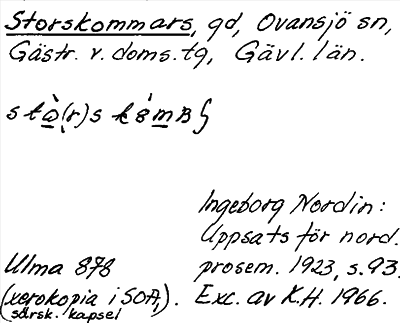 Storskommars, gd, Ovansjö sn,
Gästr. v. doms. tg, Gävl. län.
Ingeborg Nordin:
Uppsats för nord.
Ulma 878 prosem. 1923, s. 93.
(xerokopia i SOA,). Exc. av K.H. 1966.
särsk. kapsel